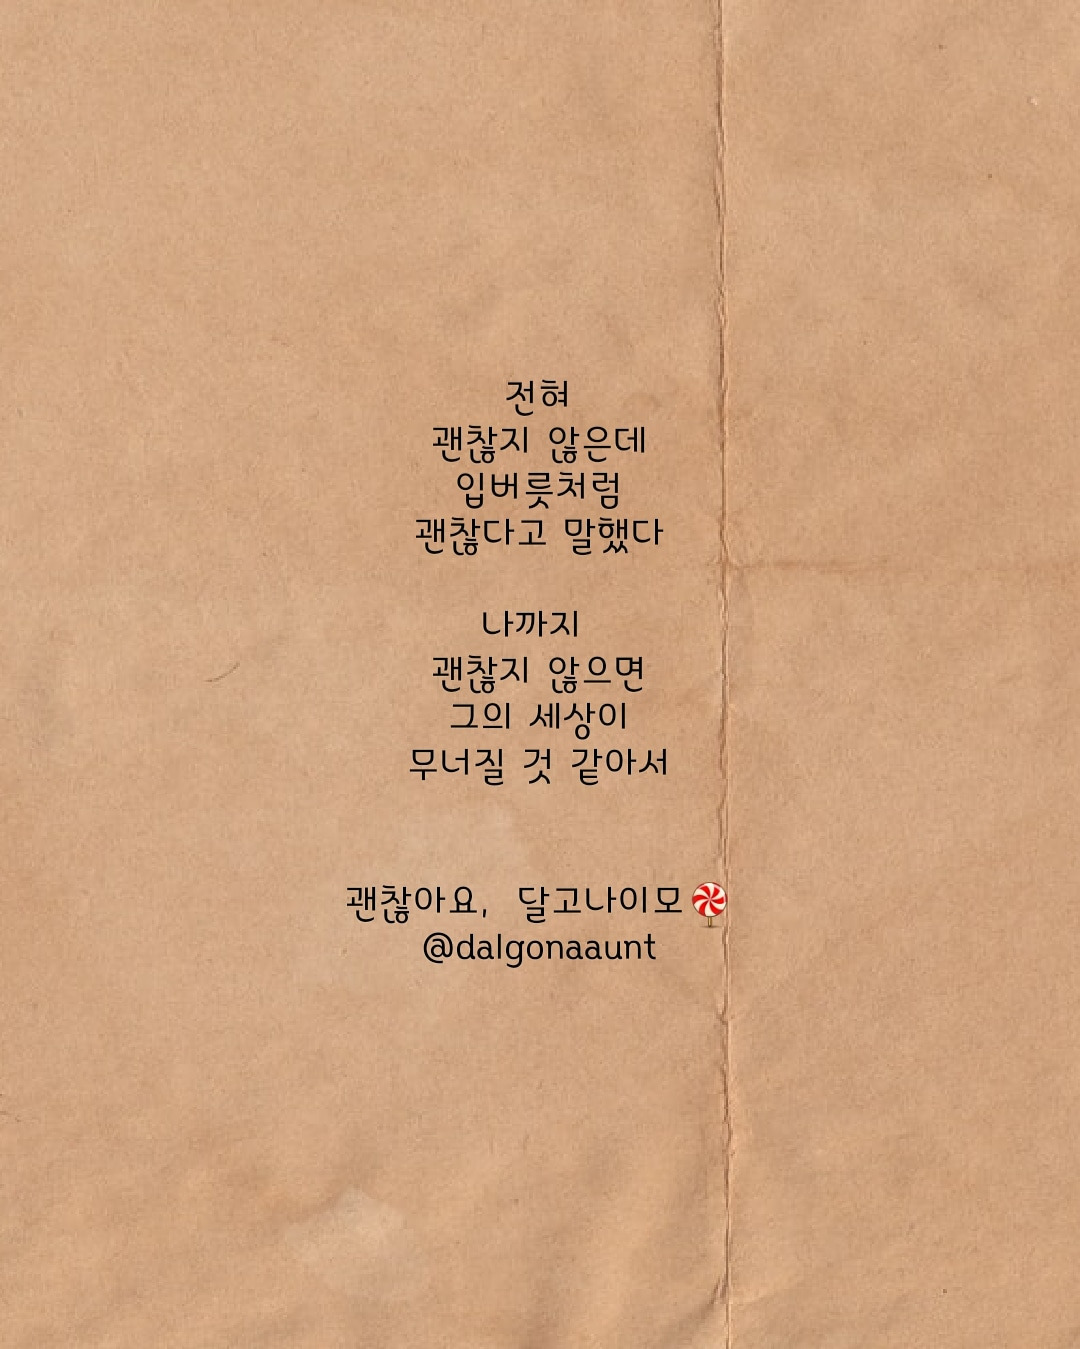 전혀
괜찮지 않은데
입버릇처럼
괜찮다고 말했다
나까지
괜찮지 않으면
그의 세상이
무너질 것 같아서
괜찮아요, 달고나이모🍭
@dalgonaaunt